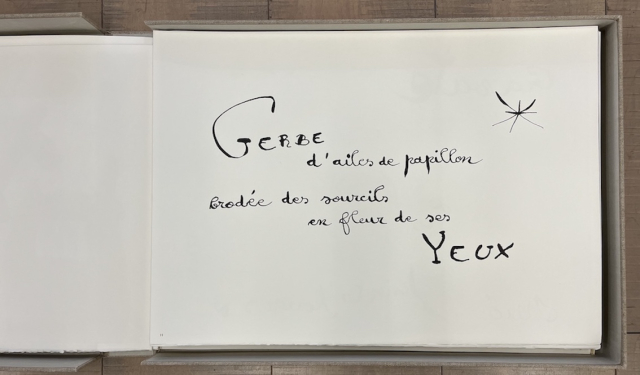 GERBE
d'ailes de papillon
brodée des sourcils
en fleur de ses
YEUX